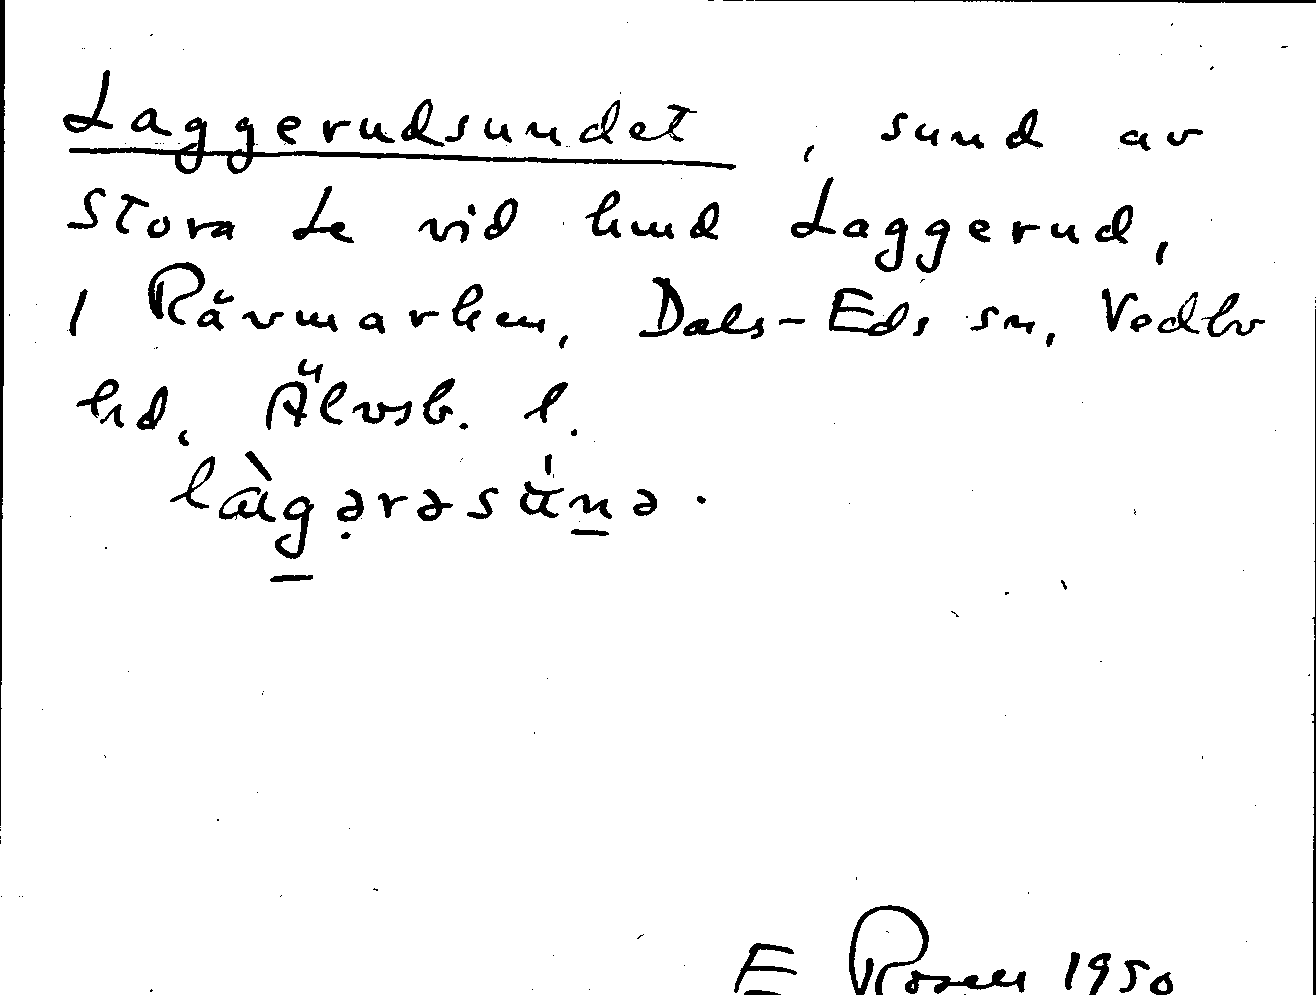 Laggerudsundet, sund av
Stora Le vid hmd Laggerud,
i Rävmarken, Dals-Eds sn, Vedbo
hd, Älvsb. l.
làg̠ə̣rəsu̇̀n̠ə.
E Rosen 1950